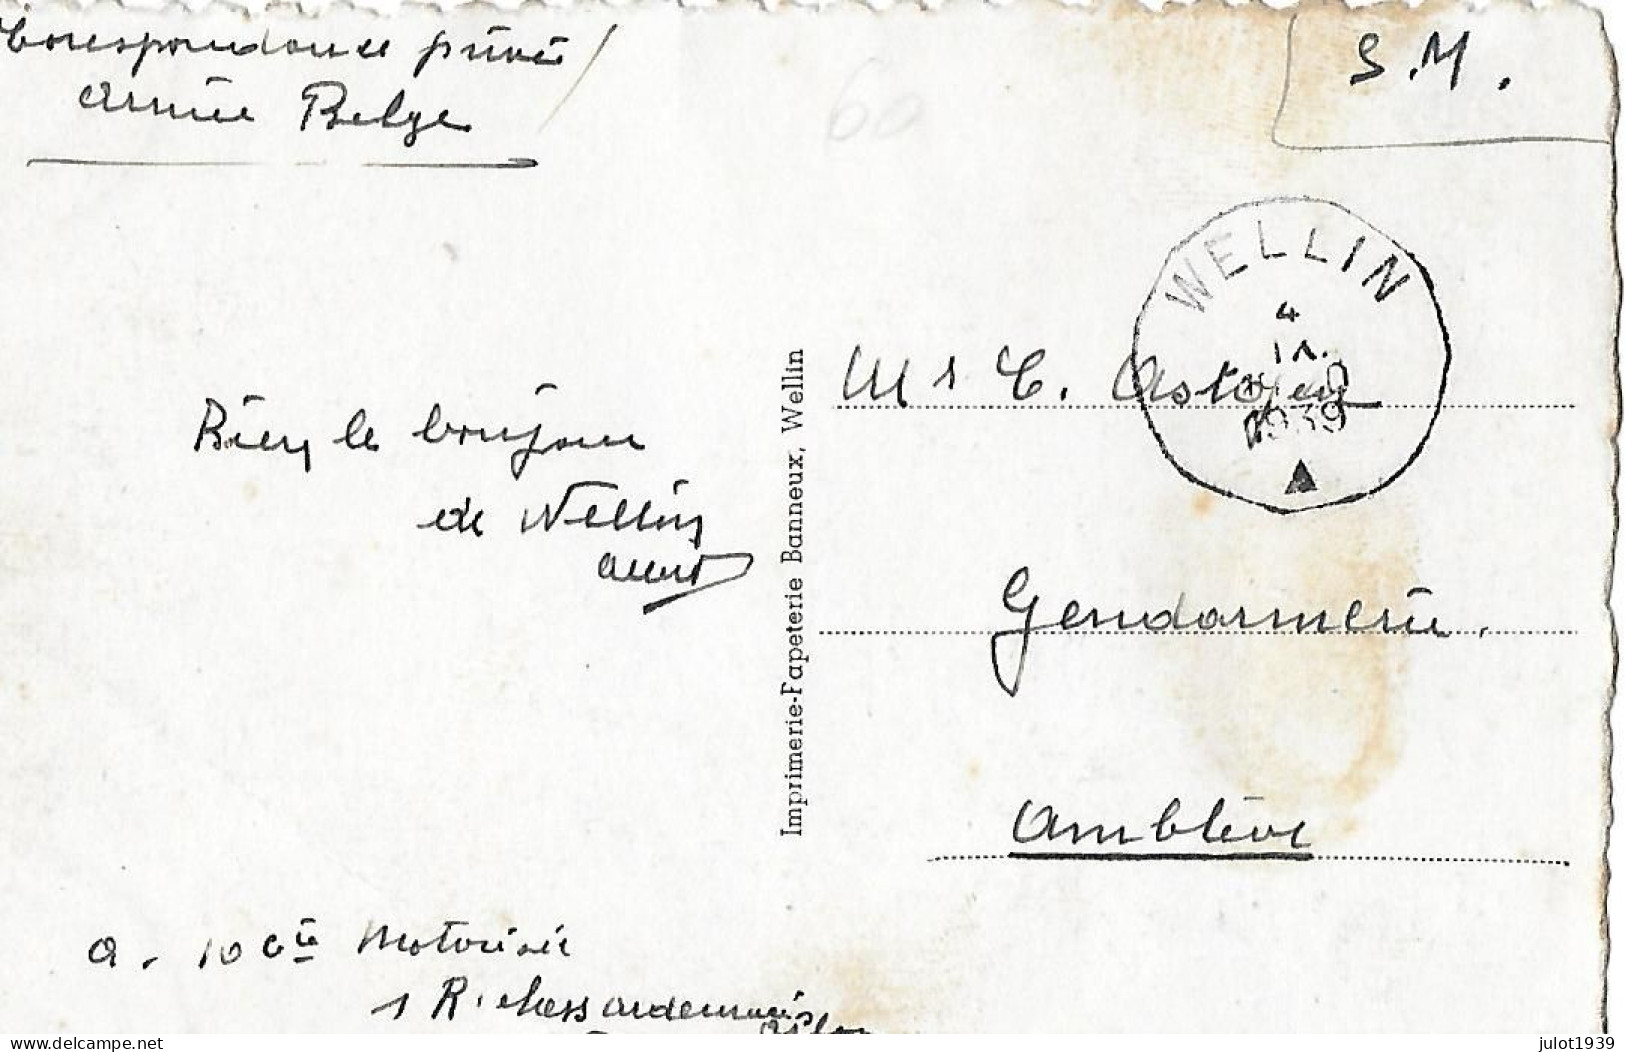 Correspondance privée
Armée Belge
S.M.
60
WELLIN
4
1939
Mr C.
Bien le bonjour
de Wellin
Gendarmerie.
Amblève
Imprimerie-Papeterie Banneux, Wellin
a. 10 Cie Motorisée
1 R. chass ardennais
www.delcampe.net
julot1939